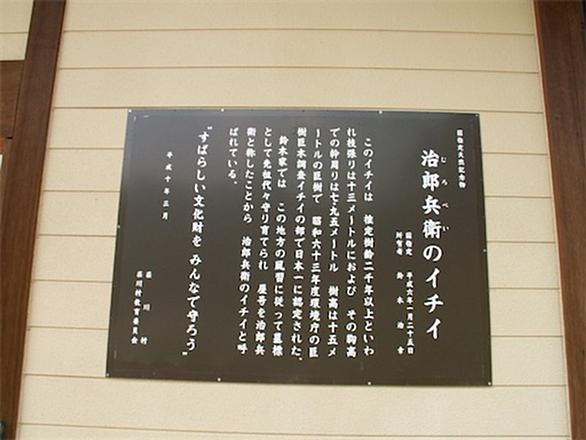 国指定天然記念物
じろべい
治郎兵衛のイチイ
国指定 平成六年一月二十五日
所有者 鈴木治吉
このイチイは 推定樹齢二千年以上といわ
れ枝張りは十三メートルにおよび その胸高
での幹周りは七・九五メートル 樹高は十五メ
ートルの巨樹で 昭和六十三年度環境庁の巨
樹巨木調査イチイの部で日本一に認定された。
鈴木家では この地方の風習に従って墓標
として先祖代々守り育てられ 屋号を治郎兵
衛と称したことから 治郎兵衛のイチイと呼
ばれている。
"すばらしい文化財を みんなで守ろう"
平成十年三月
荘川村
荘川村教育委員会